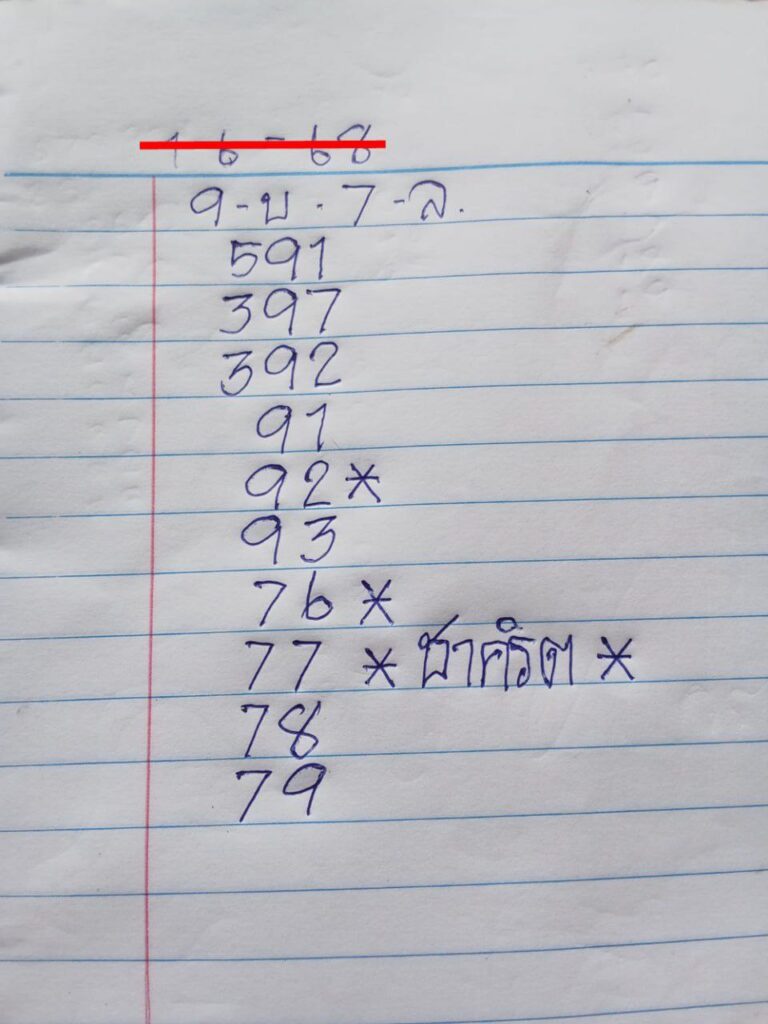 1 6 - 68
9 - บ . 7 - ล.
591
397
392
91
92*
93
76*
77 * ชาคริต *
78
79